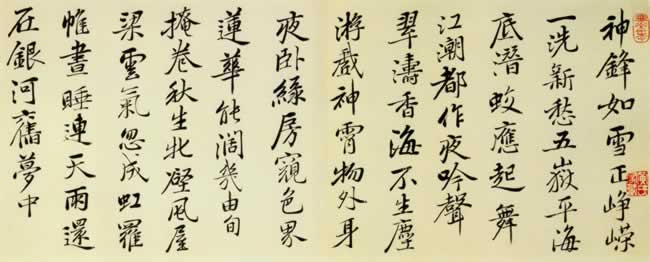 神鋒如雪正崢嶸
一洗新愁五嶽平海
底潛蛟應起舞
江潮都作夜吟聲
翠濤香海不生塵
游戲神霄物外身
夜卧綠房窺色界
蓮華能闊幾由旬
掩卷秋生北壁風屋
梁雲氣忽成虹羅
帷晝睡連天雨還
在銀河舊夢中